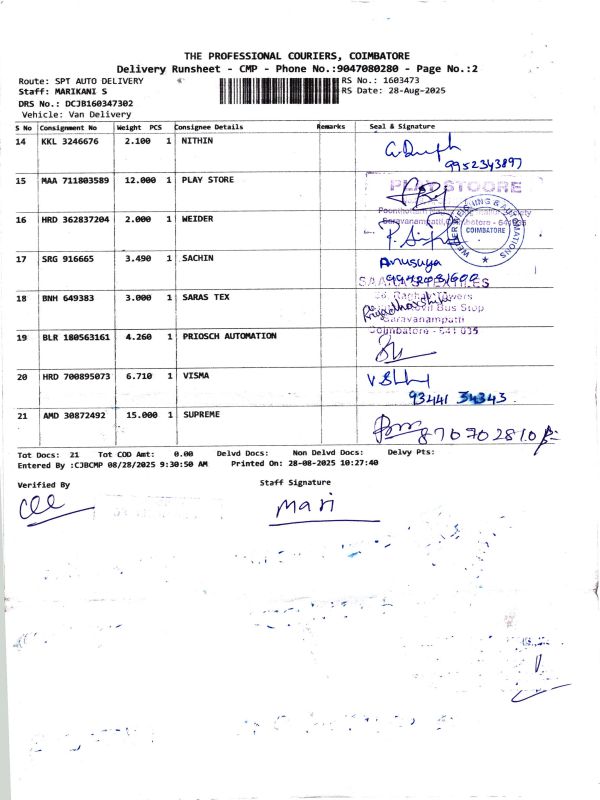 THE PROFESSIONAL COURIERS, COIMBATORE
Delivery Runsheet - CMP - Phone No.:9047080280 - Page No.:2
Route: SPT AUTO DELIVERY RS No.: 1603473
Staff: MARIKANI S RS Date: 28-Aug-2025
DRS No.: DCJB160347302
Vehicle: Van Delivery
S No Consignment No Weight PCS Consignee Details Remarks Seal & Signature
14 KKL 3246676 2.100 1 NITHIN
9952343897
15 MAA 711803589 12.000 1 PLAY STORE
PLAY STOORE
16 HRD 362837204 2.000 1 WEIDER
WEIDER WEIGHING & AUTOMATIONS
COIMBATORE
17 SRG 916665 3.490 1 SACHIN Anusuya
18 BNH 649383 3.000 1 SARAS TEX
Bus Stop
Saravanampatti
Coimbatore - 641 035
19 BLR 180563161 4.260 1 PRIOSCH AUTOMATION
20 HRD 700895073 6.710 1 VISMA
93441 34343
21 AMD 30872492 15.000 1 SUPREME
Tot Docs: 21 Tot COD Amt: 0.00 Delvd Docs: Non Delvd Docs: Delvy Pts:
Entered By :CJBCMP 08/28/2025 9:30:50 AM Printed On: 28-08-2025 10:27:40
Verified By Staff Signature
Mari